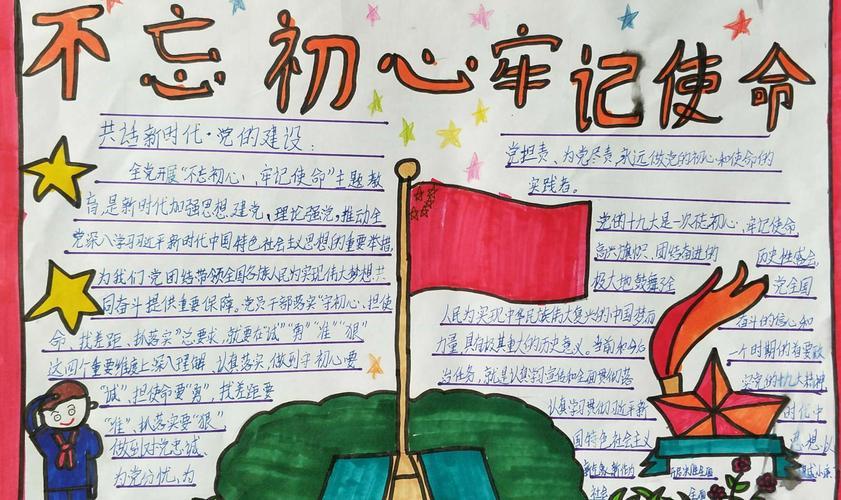 不忘初心牢记使命
共话新时代·党的建设：
全党开展“不忘初心、牢记使命”主题教
育，是新时代加强思想建党、理论强党，推动全
党深入学习习近平新时代中国特色社会主义思想的重要举措，
为我们党团结带领全国各族人民为实现伟大梦想共
同奋斗提供重要保障。党员干部落实“守初心、担使
命，找差距、抓落实”总要求，就要在“诚”“勇”“准”“狠”
这四个重要维度上深入理解、认真落实，做到守初心要
“诚”，担使命要“勇”，找差距要
“准”、抓落实要“狠”
做到对党忠诚、
为党分忧、为
党担责、为党尽责，永远做党的初心和使命的
实践者。
党的十九大是一次不忘初心、牢记使命
高兴旗帜、团结奋进的 历史性盛会
极大地鼓舞了全 党全国
人民为实现中华民族伟大复兴的中国梦而 奋斗的信心和
力量，具有极其重大的历史意义。当前和今后 一个时期的首要政
治任务，就是认真学习宣传和全面贯彻落 实党的十九大精神
认真学习贯彻习近平新 时代中
国特色社会主义 思想，以
社会 全国